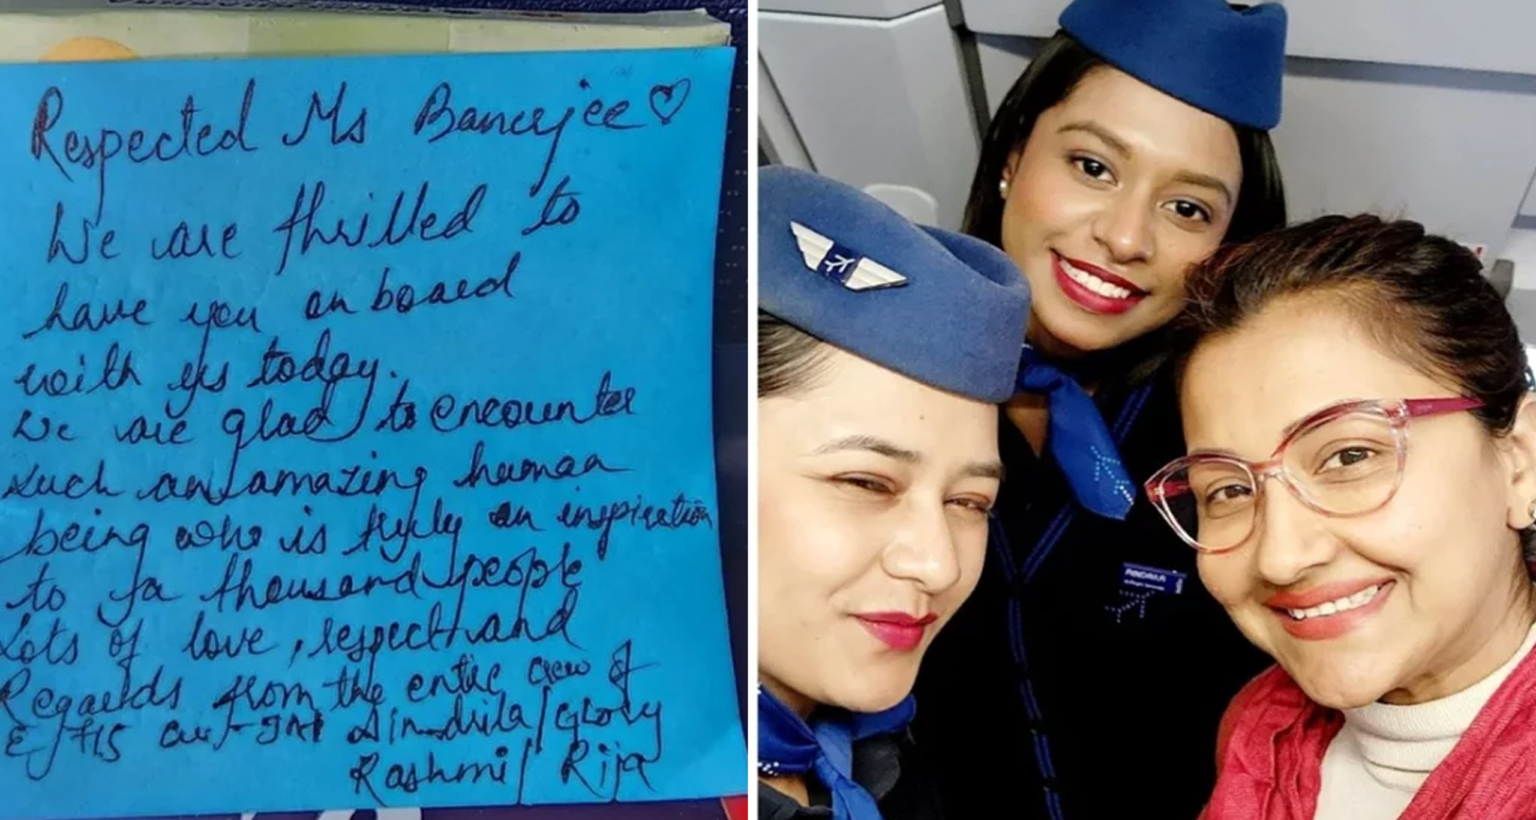 Respected Ms Banerjee♡
We are thrilled to
have you on board
with us today.
We are glad to encounter
such an amazing human
being who is truly an inspiration
to fa thousand people
Lots of love, respect and
Regards from the entire crew of
6E/715 Simdrila/Glory
Rashmi/ Rija